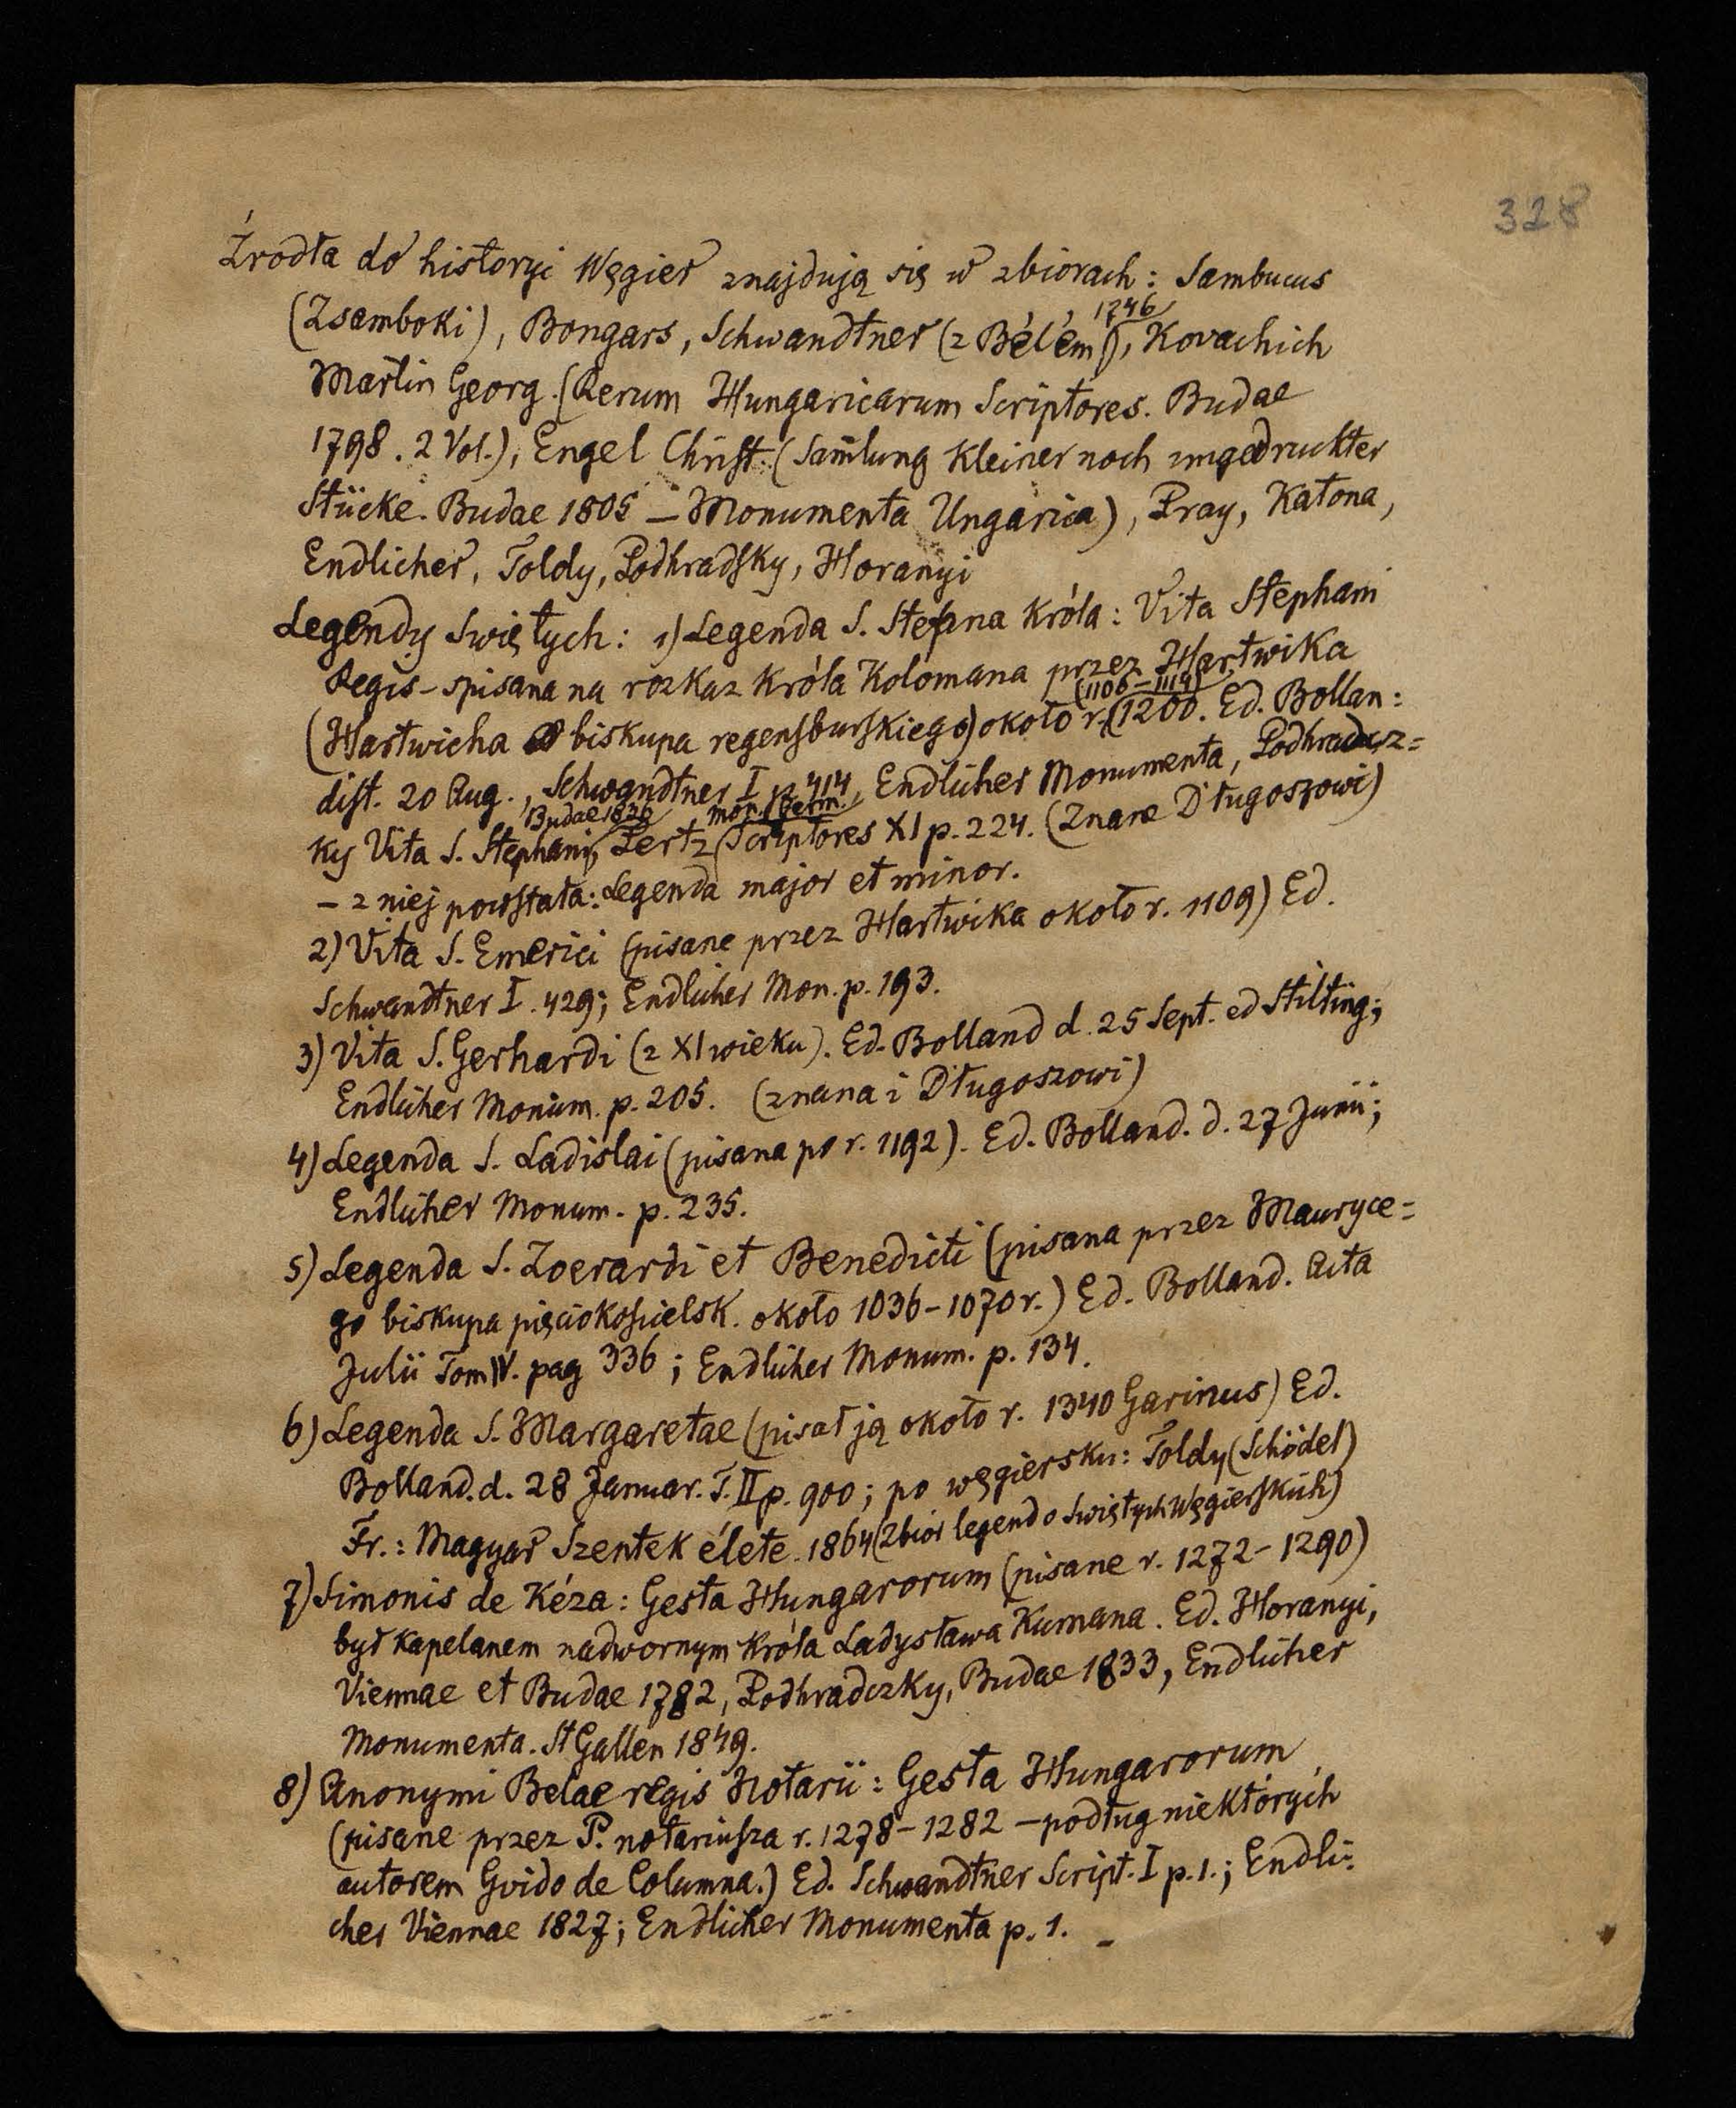 328
Źrodła do historyi Węgier znajdują się w zbiorach: Sambucus
(Zsamboki), Bongars, Schwandtner (z Bélém 1746), Kovachich
Martin Georg. (Rerum Hungaricarum Scriptores. Budae
1798. 2 Vol.), Engel Christ. (Sam̄lung kleiner noch ungedruckter
Stücke. Budae 1805 – Monumenta Ungarica), Pray, Katona,
Endlicher, Toldy, Podhradsky, Horanyi
Legendy Swiętych: 1) Legenda S. Stefana Króla: Vita Stephani
Regis – spisana na rozkaz króla Kolomana przez Hartwika
(Hartwicha biskupa regensburskiego) około r. (1106–1114) 1200. Ed. Bollan:
dist. 20 Aug., Schwandtner I p. 414, Endlicher Monumenta, Podhradcz=
ky Vita S. Stephani, Budae 1836, Pertz Mon. Germ. Scriptores XI p. 224. (Znane Długoszowi)
– z niej powstała: Legenda major et minor.
2) Vita S. Emerici (pisane przez Hartwika około r. 1109) Ed.
Schwandtner I. 429; Endlicher Mon. p. 193.
3) Vita S. Gerhardi (z XI wieku). Ed. Bolland d. 25 Sept. ed Stilting;
Endlicher Monum. p. 205. (znana i Długoszowi)
4) Legenda S. Ladislai (pisana po r. 1192). Ed. Bolland. d. 27 Junii;
Endlicher Monum. p. 235.
5) Legenda S. Zoerardi et Benedicti (pisana przez Mauryce=
go biskupa pięciokosćielsk. około 1036–1070 r.) Ed. Bolland. Acta
Julii Tom IV. pag 336; Endlicher Monum. p. 134.
6) Legenda S. Margaretae (pisał ją około r. 1340 Garinus) Ed.
Bolland. d. 28 Januar. T. II p. 900; po węgiersku: Toldy (Schödel)
Fr.: Magyar Szentek élete. 1864 (Zbiór legend o Swiętych Węgierskich)
7) Simonis de Kéza: Gesta Hungarorum (pisane r. 1272–1290)
był kapelanem nadwornym Króla Ladysława Kumana. Ed. Horanyi,
Viennae et Budae 1782, Podhradczky, Budae 1833, Endlicher
Monumenta. St Gallen 1849.
8) Anonymi Belae regis Notarii: Gesta Hungarorum
(pisane przez P. notariusza r. 1278–1282 – podług niektórych
autorem Gvido de Columna.) Ed. Schwandtner Script. I p. 1.; Endli:
cher Viennae 1827; Endlicher Monumenta p. 1. –